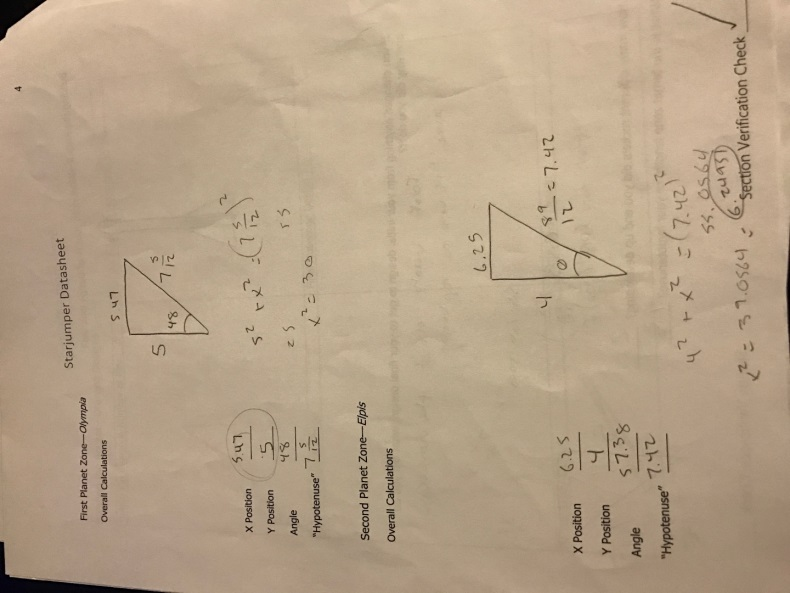 4
Starjumper Datasheet
First Planet Zone—Olympia
Overall Calculations
5.47
5
48
7 5/12
5² + x² = (7 5/12)²
25 55
x² = 30
X Position 5.47
Y Position 5
Angle 48
"Hypotenuse" 7 5/12
Second Planet Zone—Elpis
Overall Calculations
6.25
4
θ
89/12 = 7.42
X Position 6.25
Y Position 4
Angle 57.38
"Hypotenuse" 7.42
4² + x² = (7.42)²
55.0564
x² = 39.0564 = 6.24951
Section Verification Check